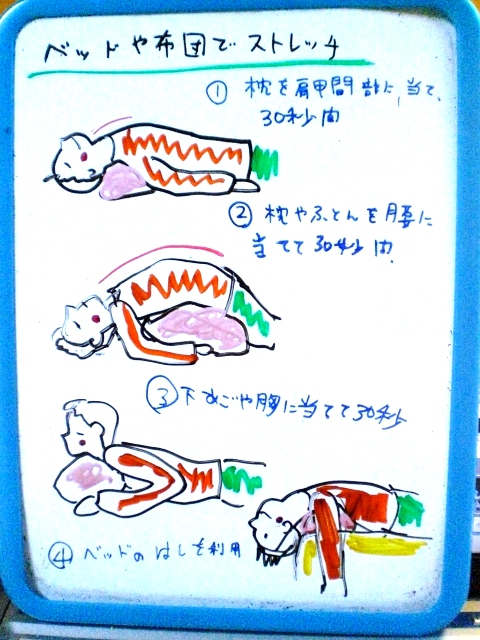 ベッドや布団でストレッチ
① 枕を肩甲間部に、当て、
30秒間
② 枕やふとんを腰に
当てて30秒間、
③ 下あごや胸に当てて30秒
④ ベッドのはしを利用